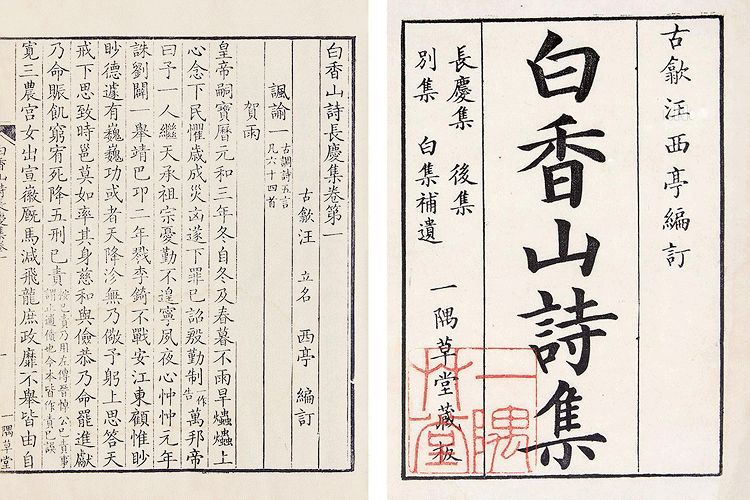 古歙汪西亭編訂
白香山詩集
長慶集　後集
別集　白集補遺
一隅草堂藏板
一隅
草堂
白香山詩長慶集卷第一
古歙汪　立名　西亭　編訂
諷諭一　古調詩五言
凡六十四首
賀雨
皇帝嗣寶曆元和三年冬自冬及春暮不雨旱爞爞上
心念下民懼歲成災凶遂下罪已詔殷勤制一作告萬邦帝
曰予一人繼天承祖宗憂勤不遑寧夙夜心忡忡元年
誅劉闢一舉靖巴卭二年戮李錡不戰安江東顧惟眇
眇德遽有巍巍功或者天降沴無乃儆予躬上思答天
戒下思致時邕莫如率其身慈和與儉恭乃命罷進獻
乃命賑飢窮宥死降五刑已責
已責乃用左傳晉悼公已責事
謂止逋債也今本皆作責已誤
寬三農宮女出宣徽厩馬減飛龍庶政靡不舉皆由自
一隅草堂